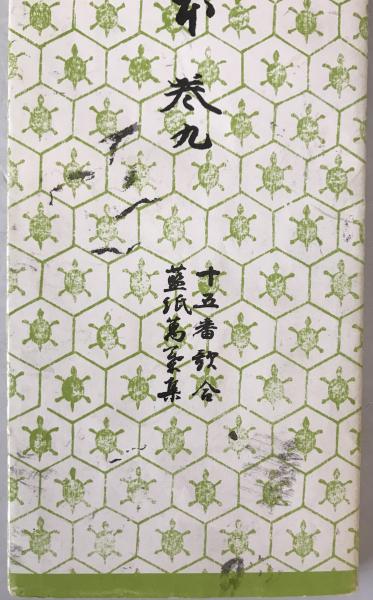 巻九
十五番歌合
藍紙萬葉集